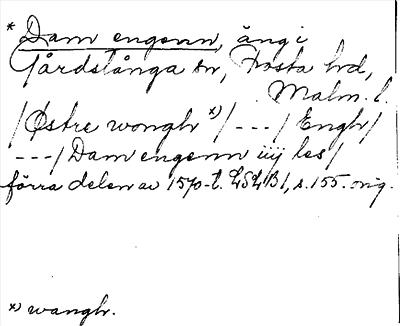 * Dam engenn, äng i
Gårdstånga sn, Frosta hd,
Malm. l.
/Østre wongh *)/---/Engh/
---/Dam engenn iiij les/
förra delen av 1570-t. LSLB1, s. 155. orig.
*) wangh.